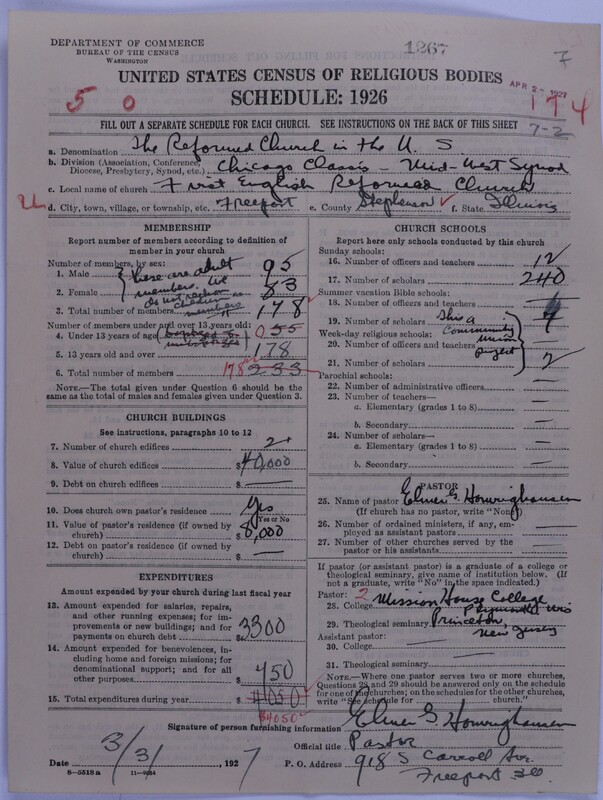 DEPARTMENT OF COMMERCE
BUREAU OF THE CENSUS
WASHINGTON
1267
7
UNITED STATES CENSUS OF RELIGIOUS BODIES
APR 2- 1927
SCHEDULE: 1926
5 0
174
FILL OUT A SEPARATE SCHEDULE FOR EACH CHURCH. SEE INSTRUCTIONS ON THE BACK OF THIS SHEET
7-2
a. Denomination The Reformed Church in the U. S
b. Division (Association, Conference, Diocese, Presbytery, Synod, etc.) Chicago Classis - Mid-West Synod
c. Local name of church First English Reformed Church
d. City, town, village, or township, etc. Freeport e. County Stephenson f. State Illinois
MEMBERSHIP
Report number of members according to definition of member in your church
Number of members, by sex:
1. Male 95
2. Female 83
these are adult members. We do not reckon children as members
3. Total number of members 178
Number of members under and over 13 years old:
4. Under 13 years of age 0 55
5. 13 years old and over 178
6. Total number of members 178 233
NOTE.—The total given under Question 6 should be the same as the total of males and females given under Question 3.
CHURCH BUILDINGS
See instructions, paragraphs 10 to 12
7. Number of church edifices 2
8. Value of church edifices $40,000
9. Debt on church edifices $ —
10. Does church own pastor's residence Yes
Yes or No
11. Value of pastor's residence (if owned by church) $8,000
12. Debt on pastor's residence (if owned by church) $ —
EXPENDITURES
Amount expended by your church during last fiscal year
13. Amount expended for salaries, repairs, and other running expenses; for improvements or new buildings; and for payments on church debt $3300
14. Amount expended for benevolences, including home and foreign missions; for denominational support; and for all other purposes $750
15. Total expenditures during year $4050
$4050
CHURCH SCHOOLS
Report here only schools conducted by this church
Sunday schools:
16. Number of officers and teachers 12
17. Number of scholars 240
Summer vacation Bible schools:
18. Number of officers and teachers
19. Number of scholars
Week-day religious schools:
20. Number of officers and teachers
21. Number of scholars
This a Community union project
Parochial schools:
22. Number of administrative officers —
23. Number of teachers—
a. Elementary (grades 1 to 8) —
b. Secondary —
24. Number of scholars—
a. Elementary (grades 1 to 8) —
b. Secondary —
PASTOR
25. Name of pastor Elmer G. Homrighausen
(If church has no pastor, write "None")
26. Number of ordained ministers, if any, employed as assistant pastors —
27. Number of other churches served by the pastor or his assistants —
If pastor (or assistant pastor) is a graduate of a college or theological seminary, give name of institution below. (If not a graduate, write "No" in the space indicated.)
Pastor: 2
28. College Mission House College
Plymouth Wis
29. Theological seminary Princeton
New Jersey
Assistant pastor:
30. College —
31. Theological seminary —
NOTE.—Where one pastor serves two or more churches, Questions 28 and 29 should be answered only on the schedule for one of the churches; on the schedules for the other churches, write "See schedule for church."
Signature of person furnishing information Elmer G. Homrighausen
Official title Pastor
Date 3/3/, 1927
P. O. Address 918 S Carroll Ave.
Freeport Ill.
8—5518a